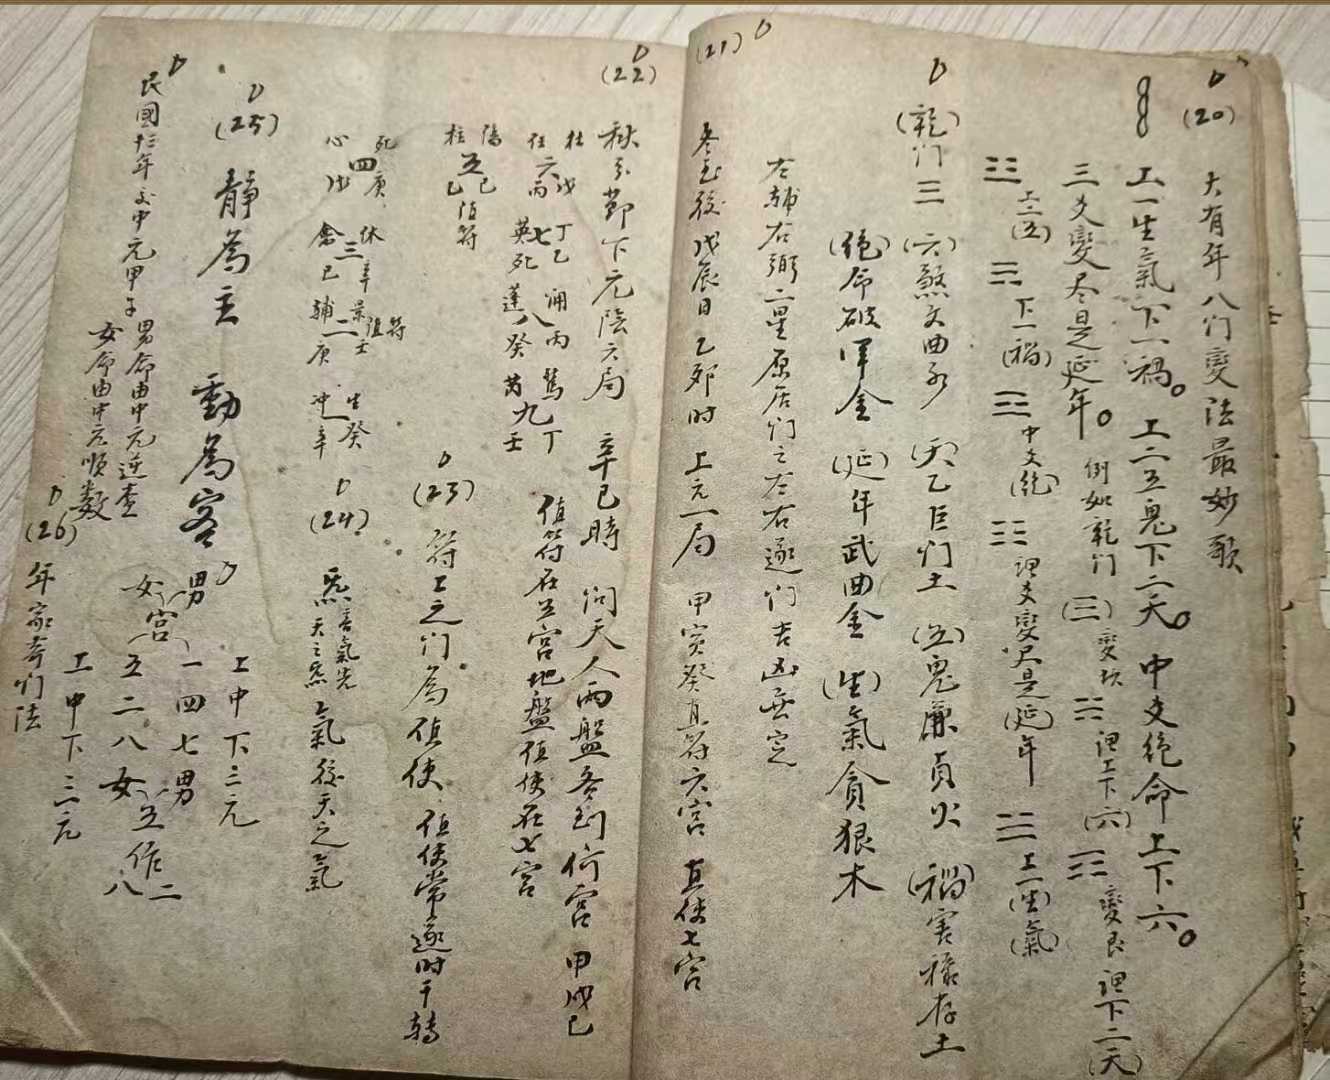 (20)
大有年八门變法最妙歌
上一生氣下一禍。上二五鬼下二天。中爻絶命上下六。
三爻變尽是延年。例如乾门(☰)變坎☵謂上下(六)☶變艮謂下二(天)
☳上二(五) ☴下一(禍) ☲中爻(絶) ☷謂爻變尽是(延)年 ☱上一(生)(氣)
(乾)门☰(六)煞文曲水 (天)乙巨门土 (五)鬼廉貞火 (禍)害禄存土
(絶)命破軍金 (延)年武曲金 (生)氣貪狼木
左輔右弼二星原居门之左右遂门吉凶無定
(21)
冬至後戊辰日乙卯时 上元一局 甲寅癸直符六宫 直使七宫
(22)
秋分節下元陰六局 辛巳時 问天人两盤各到何宮 甲戌己
值符在五宫地盤值使在七宫
杜 戊 丁乙 丙 驚 丁
任 六 丙 英 七 死 蓬 八 癸 芮 九 壬
傷 己
柱 五 乙 值符
死 庚 休 辛 景 壬 值符 生 癸
心 四 戊 禽 三 己 輔 二 庚 冲 一 辛
(23)
符上之门為值使 值使常遂时干轉
(24)
炁音氣先天之炁 氣後天之氣
(25)
静為主 動為客
男女宫
上中下三元
一四七男
五二八女 五作二八
上中下三元
民國十三年交中元甲子 男命由中元逆查
女命由中元順数
(26)
年家奇们法